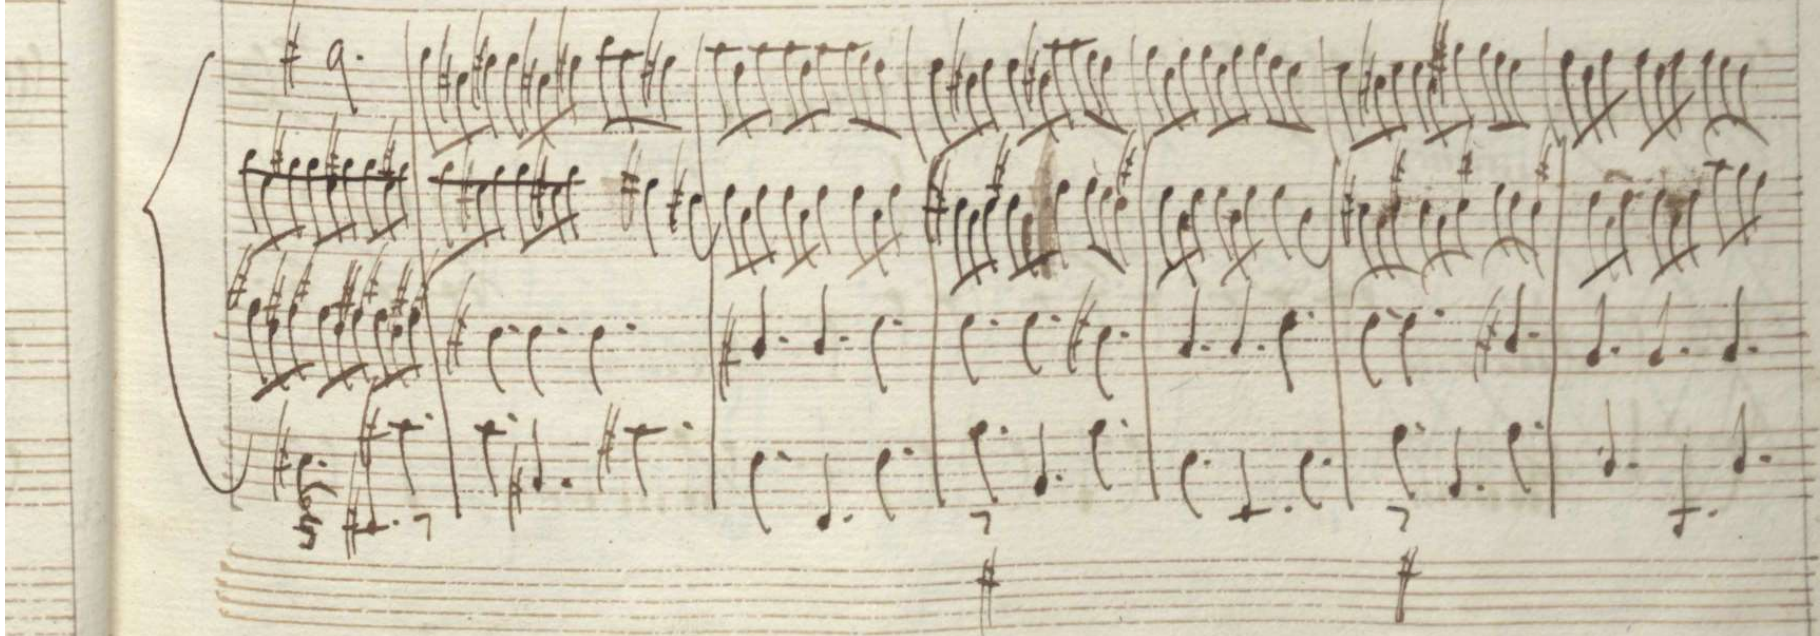 6
5 7 7 7